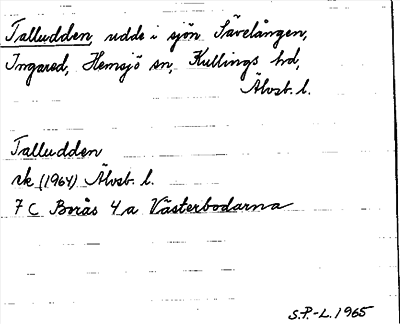 Talludden, udde i sjön Sävelången,
Ingared, Hemsjö sn, Kullings hd,
Älvsb. l.
Talludden
rk (1964) Älvsb. l.
7 C Borås 4 a Västerbodarna
S.P.-L. 1965